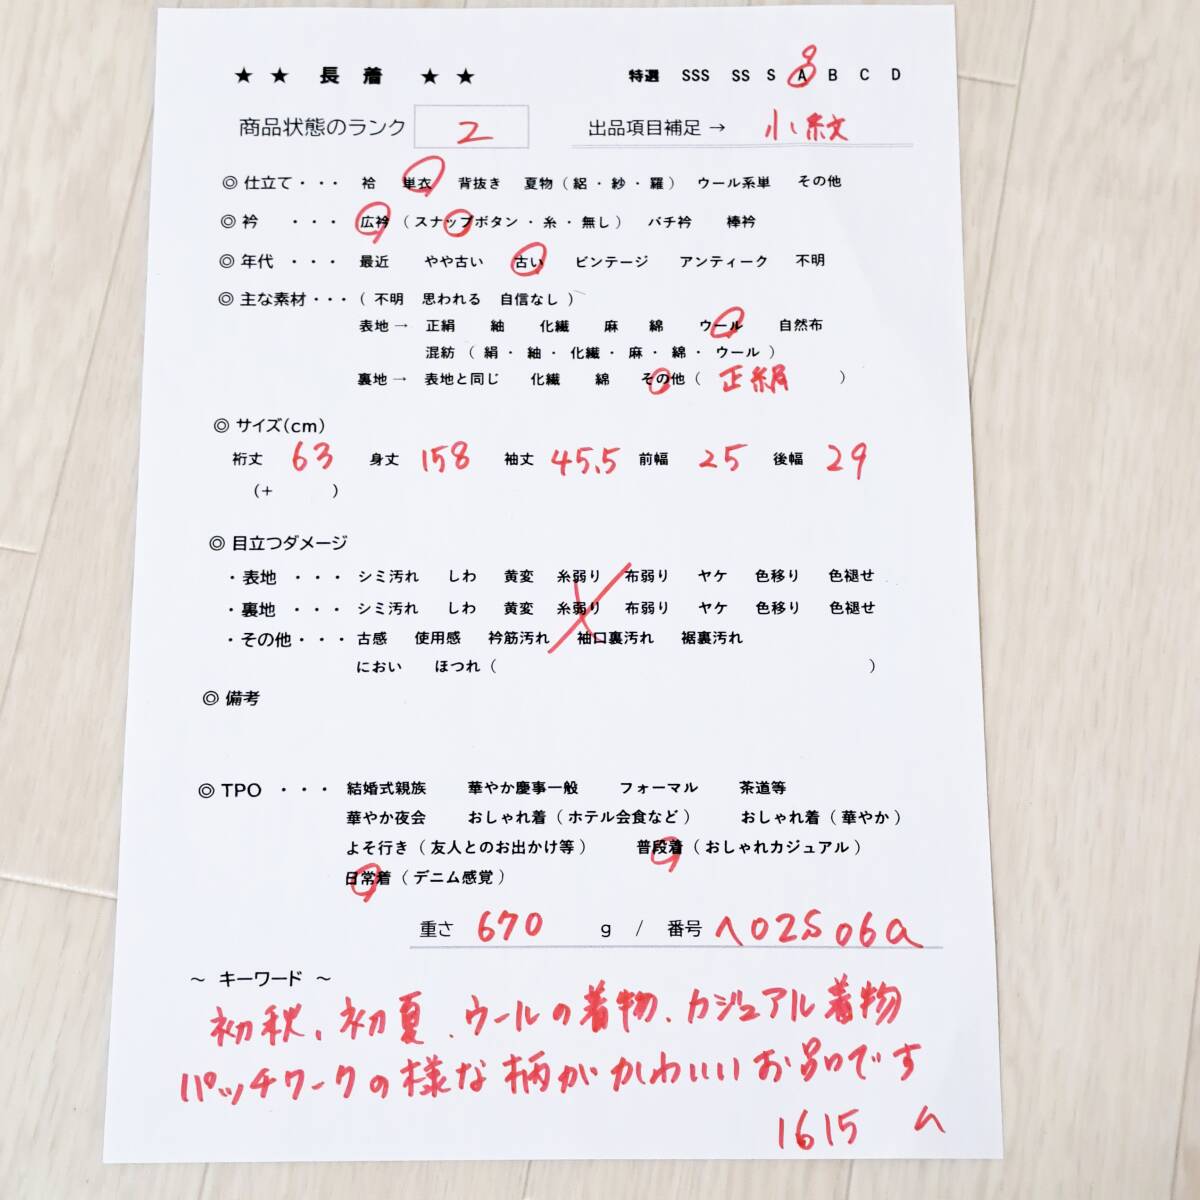 ★ ★ 長 着 ★ ★ 特選 SSS SS S A B C D
商品状態のランク 2 出品項目補足 → 小紋
◎ 仕立て ・・・ 袷 単衣 背抜き 夏物 ( 絽 ・ 紗 ・ 羅 ) ウール系単 その他
◎ 衿 ・・・ 広衿 ( スナップボタン ・ 糸 ・ 無し ) バチ衿 棒衿
◎ 年代 ・・・ 最近 やや古い 古い ビンテージ アンティーク 不明
◎ 主な素材 ・・・ ( 不明 思われる 自信なし )
表地 → 正絹 紬 化繊 麻 綿 ウール 自然布
混紡 ( 絹 ・ 紬 ・ 化繊 ・ 麻 ・ 綿 ・ ウール )
裏地 → 表地と同じ 化繊 綿 その他 ( 正絹 )
◎ サイズ(cm)
裄丈 63 身丈 158 袖丈 45.5 前幅 25 後幅 29
(+ )
◎ 目立つダメージ
・表地 ・・・ シミ汚れ しわ 黄変 糸弱り 布弱り ヤケ 色移り 色褪せ
・裏地 ・・・ シミ汚れ しわ 黄変 糸弱り 布弱り ヤケ 色移り 色褪せ
・その他 ・・・ 古感 使用感 衿筋汚れ 袖口裏汚れ 裾裏汚れ
におい ほつれ ( )
◎ 備考
◎ TPO ・・・ 結婚式親族 華やか慶事一般 フォーマル 茶道等
華やか夜会 おしゃれ着 ( ホテル会食など ) おしゃれ着 ( 華やか )
よそ行き ( 友人とのお出かけ等 ) 普段着 ( おしゃれカジュアル )
日常着 ( デニム感覚 )
重さ 670 g / 番号 へ02S06a
～ キーワード ～
初秋、初夏、ウールの着物、カジュアル着物
パッチワークの様な柄がかわいいお品です
1615 へ